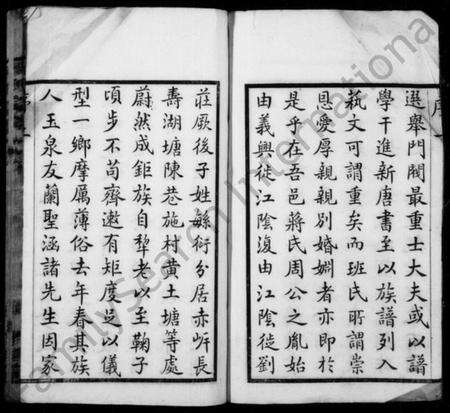 選舉門閥最重士大夫或以譜
學干進新唐書至以族譜列入
蓺文可謂重矣而班氏所謂崇
恩愛厚親親別婚姻者亦即於
是乎在吾邑蔣氏周公之胤始
由義興徙江陰復由江陰徙劉
莊厥後子姓緐衍分居赤岍長
壽湖塘陳巷施村黄土塘等處
蔚然成鉅族自犂老以至鞠子
頃步不苟齊遬有矩度足以儀
型一鄉摩厲薄俗去年春其族
人玉泉友蘭聖涵諸先生因家
序
FamilySearch International